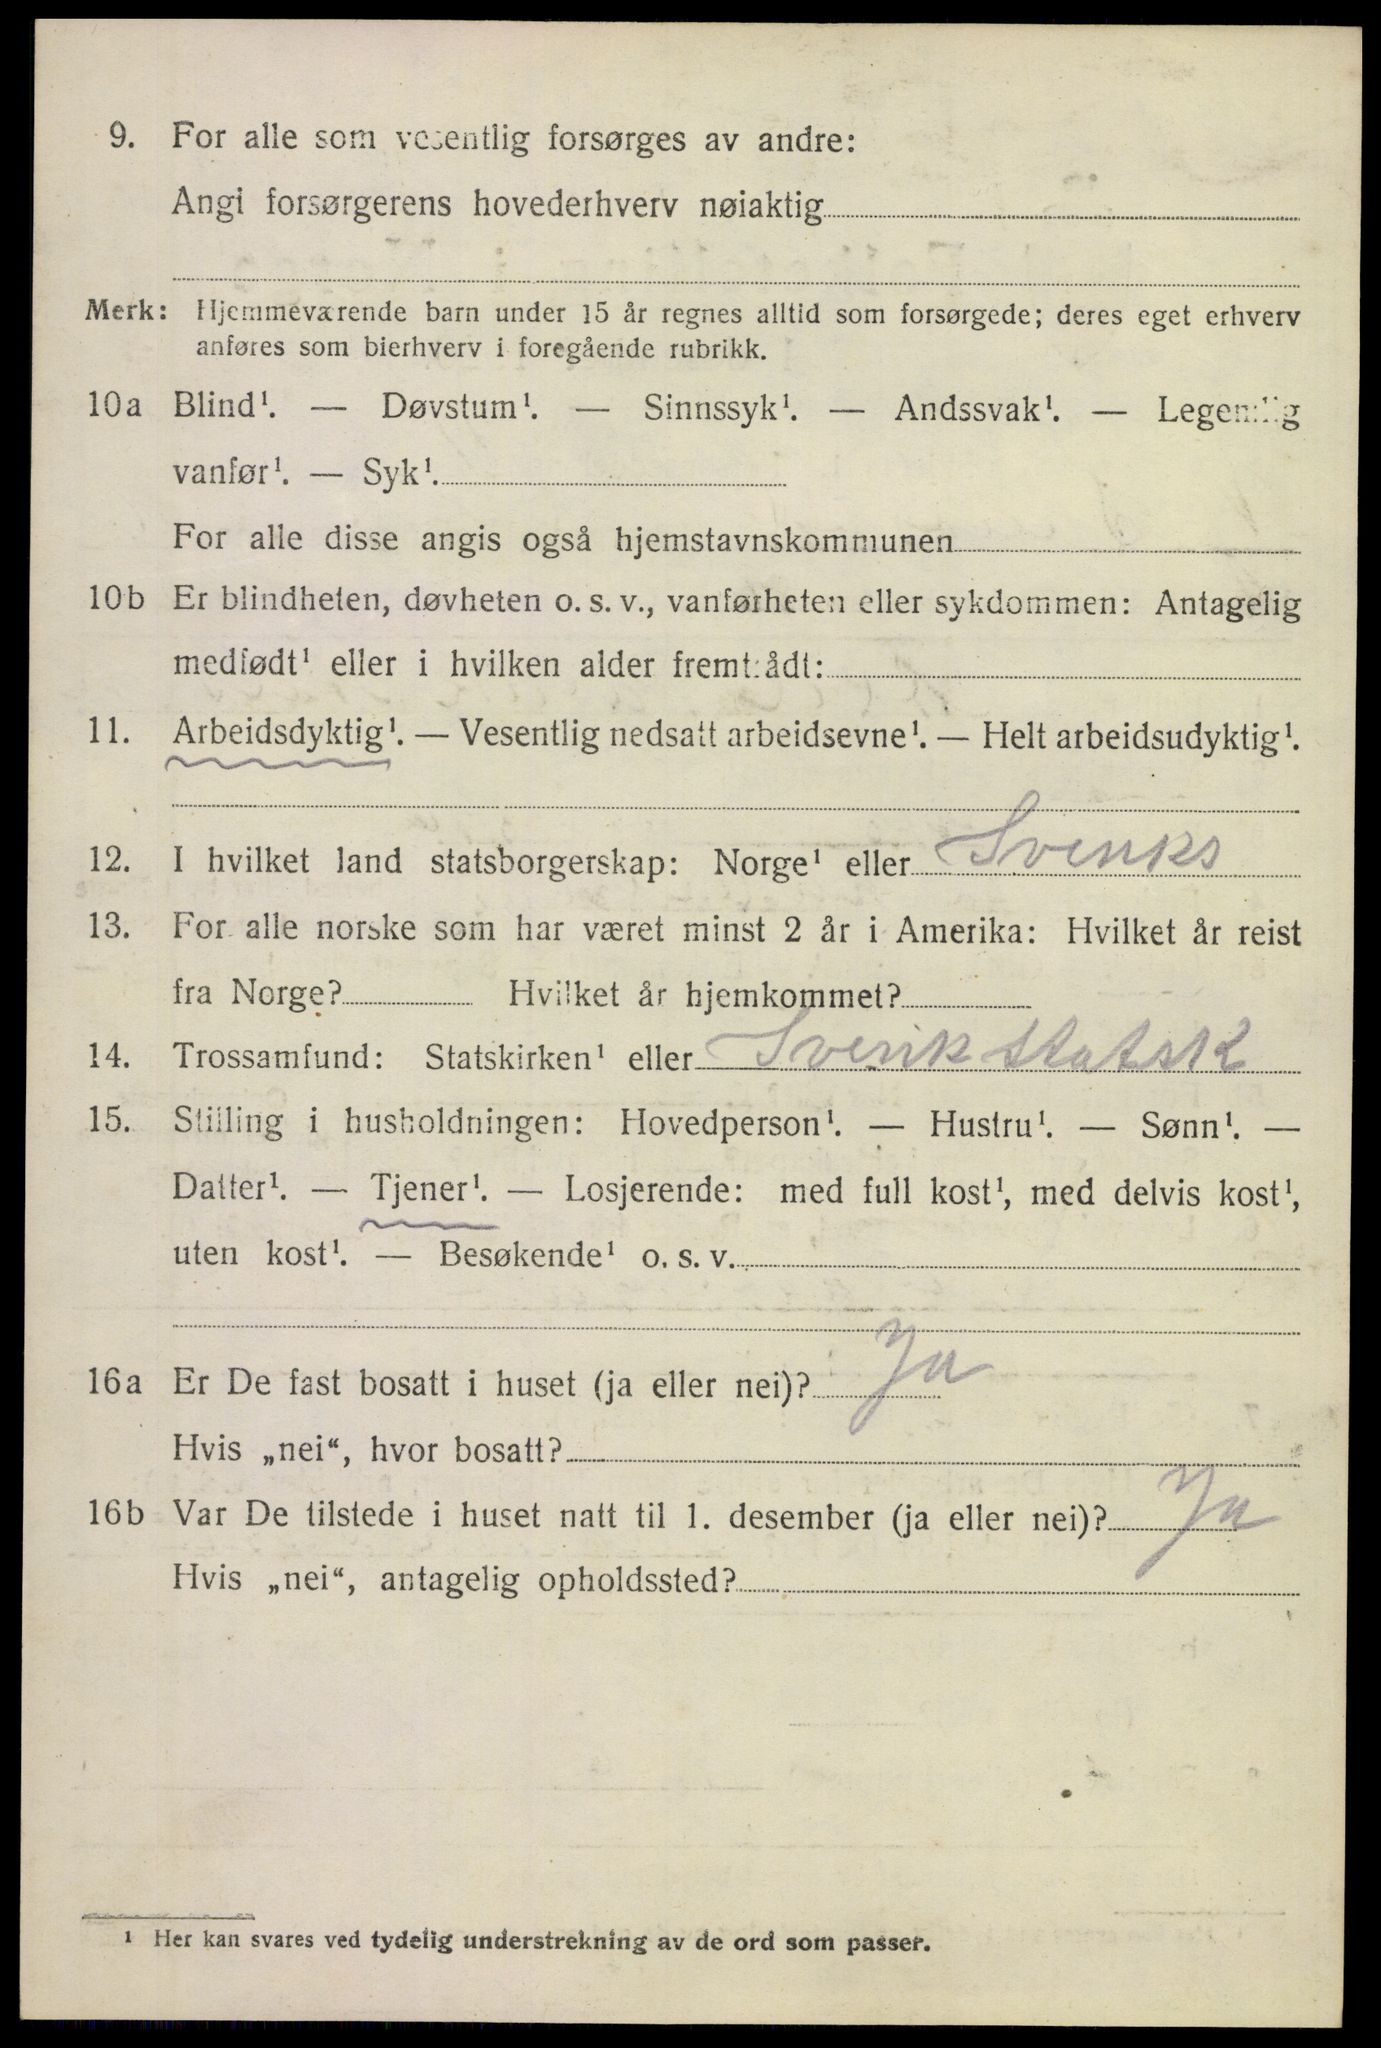 9. For alle som vesentlig forsørges av andre:
Angi forsørgerens hovederhverv nøiaktig
Merk: Hjemmeværende barn under 15 år regnes alltid som forsørgede; deres eget erhverv
anføres som bierhverv i foregående rubrikk.
10a Blind¹. — Døvstum¹. — Sinnssyk¹. — Andssvak¹. — Legemlig
vanfør¹. — Syk¹.
For alle disse angis også hjemstavnskommunen
10b Er blindheten, døvheten o. s. v., vanførheten eller sykdommen: Antagelig
medfødt¹ eller i hvilken alder fremtrådt:
11. Arbeidsdyktig¹. — Vesentlig nedsatt arbeidsevne¹. — Helt arbeidsudyktig¹.
12. I hvilket land statsborgerskap: Norge¹ eller Svenks
13. For alle norske som har været minst 2 år i Amerika: Hvilket år reist
fra Norge? Hvilket år hjemkommet?
14. Trossamfund: Statskirken¹ eller Svenk Statsk
15. Stilling i husholdningen: Hovedperson¹. — Hustru¹. — Sønn¹. —
Datter¹. — Tjener¹. — Losjerende: med full kost¹, med delvis kost¹,
uten kost¹. — Besøkende¹ o. s. v.
16a Er De fast bosatt i huset (ja eller nei)? Ja
Hvis „nei“, hvor bosatt?
16b Var De tilstede i huset natt til 1. desember (ja eller nei)? Ja
Hvis „nei“, antagelig opholdssted?
¹ Her kan svares ved tydelig understrekning av de ord som passer.